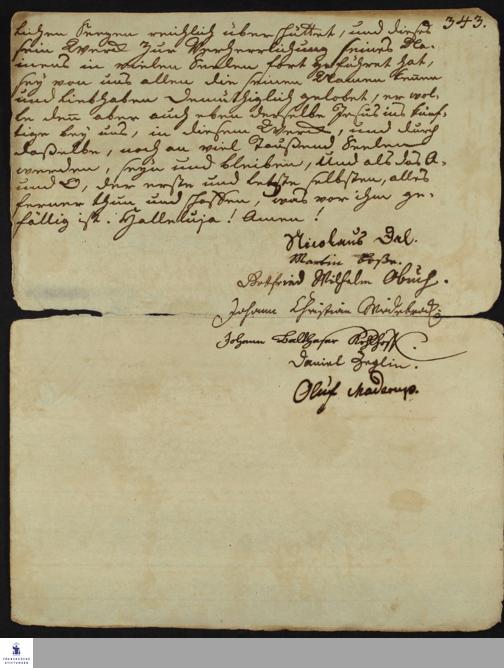 343.
lichen Seegen reichlich überschüttet, und dieses
sein Werck zur Verherrlichung seines Na-
mens in vielen Seelen fort geführet hat,
sey von uns allen die seinen Namen kennen
und liebhaben demüthiglich gelobet, er wol-
le denn aber auch eben derselbe Jesus ins künf-
tige bey uns, in diesem Werck, und durch
dasselbe, noch an viel Tausend Seelen
werden, seyn und bleiben, und als das A.
und O, der erste und letzte selbsten, alles
ferner thun und schaffen, was vor ihm ge-
fällig ist. Halleluja! Amen!
Nicolaus Dal.
Martin Bosse.
Gottfried Wilhelm Obuch.
Johann Christian Wiedebrock.
Johann Balthasar Kohlhoff.
Daniel Zeglin.
Oluf Maderup.
FRANCKESCHE
STIFTUNGEN